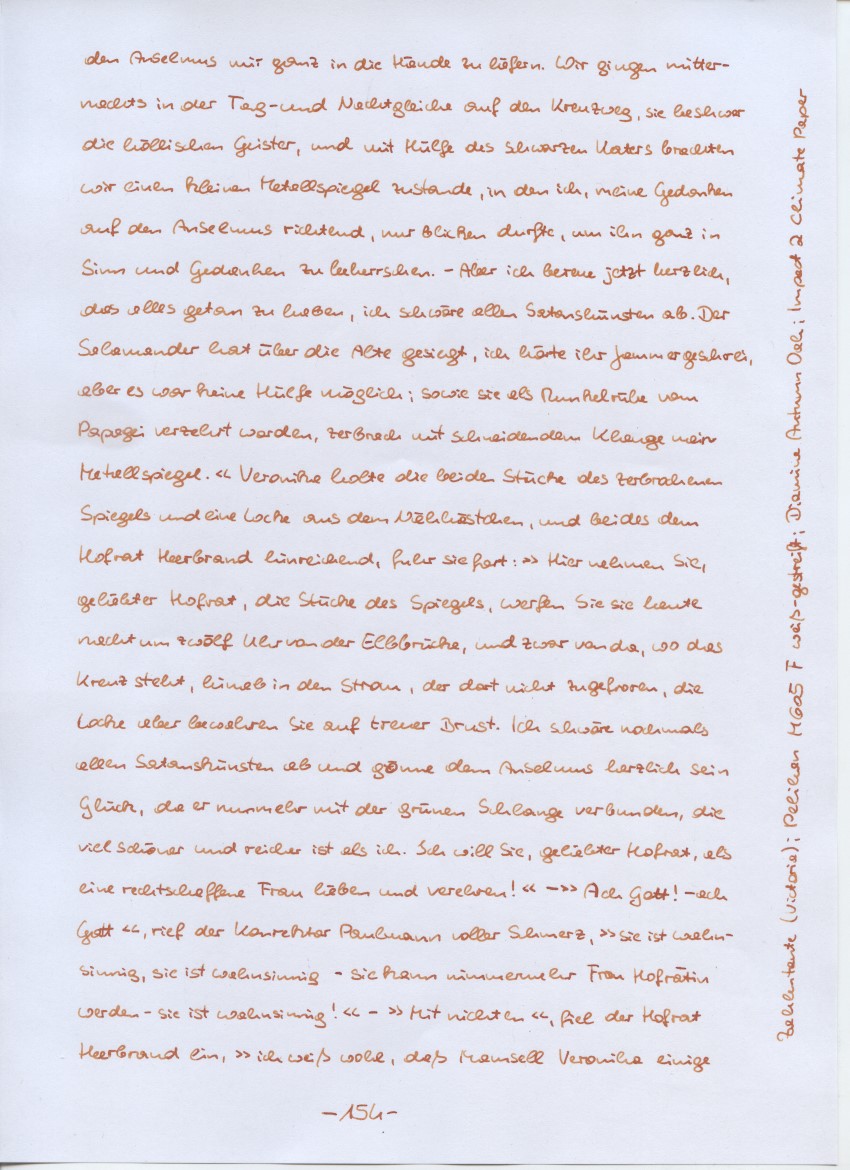 den Anselmus mir ganz in die Hände zu liefern. Wir gingen mitter-
nachts in der Tag- und Nachtgleiche auf den Kreuzweg, sie beschwor
die höllischen Geister, und mit Hülfe des schwarzen Katers brachten
wir einen kleinen Metallspiegel zustande, in den ich, meine Gedanken
auf den Anselmus richtend, nur blicken durfte, um ihn ganz in
Sinn und Gedanken zu beherrschen. - Aber ich bereue jetzt herzlich,
das alles getan zu haben, ich schwöre allen Satanskünsten ab. Der
Salamander hat über die Alte gesiegt, ich hörte ihr Jammergeschrei,
aber es war keine Hülfe möglich; sowie sie als Runkelrübe vom
Papagei verzehrt worden, zerbrach mit schneidendem Klange mein
Metallspiegel.« Veronika holte die beiden Stücke des zerbrochenen
Spiegels und eine Locke aus dem Nähkästchen, und beides dem
Hofrat Heerbrand hinreichend, fuhr sie fort: »Hier nehmen Sie,
geliebter Hofrat, die Stücke des Spiegels, werfen Sie sie heute
nacht um zwölf Uhr von der Elbbrücke, und zwar von da, wo das
Kreuz steht, hinab in den Strom, der dort nicht zugefroren, die
Locke aber bewahren Sie auf treuer Brust. Ich schwöre nochmals
allen Satanskünsten ab und gönne dem Anselmus herzlich sein
Glück, da er nunmehr mit der grünen Schlange verbunden, die
viel schöner und reicher ist als ich. Ich will Sie, geliebter Hofrat, als
eine rechtschaffene Frau lieben und verehren!« - »Ach Gott! - ach
Gott«, rief der Konrektor Paulmann voller Schmerz, »sie ist wahn-
sinnig, sie ist wahnsinnig - sie kann nimmermehr Frau Hofrätin
werden - sie ist wahnsinnig!« - »Mit nichten«, fiel der Hofrat
Heerbrand ein, »ich weiß wohl, daß Mamsell Veronika einige
- 154 -
Zahlentante (Victoria); Pelikan M605 F weiß-gestreift; Diamine Autumn Oak; Impact 2 Climate Paper